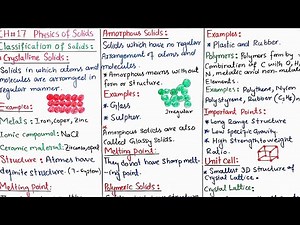 CH#17 Physics of Solids
Classification of Solids:
Crystalline Solids:
Solids in which atoms and
molecules are arranged in
regular manner.
Examples:
Metals: Iron, Copper, Zinc
Ionic compound: NaCl
Ceramic material: Zirconia, opal
Structure: Atoms have
definite structure.
Melting Point:
Amorphous Solids:
Solids which have no regular
Arrangement of atoms and
molecules.
Amorphous means without
form or structure.
Examples:
Glass
Sulpher.
Irregular
Amorphous Solids are also
Called Glassy Solids.
Melting Point:
They donot have sharp melt-
ing point.
Polymeric Solids:
Examples:
Plastic and Rubber.
Polymers: Polymers form by
Combination of C with O, H,
N, metallic and non-metallic
Elements.
Examples: Polythene, Nylon
Polystyrene, Rubber
Important Points:
Long Range Structure
Low Specific Gravity.
High Strength to weight
Ratio.
Unit Cell:
Smallest 3D Structure of
Crystal Lattice.
Crystal Lattice: